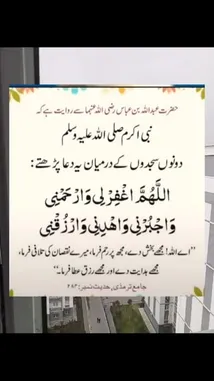 حضرت عبداللہ بن عباس رضی اللہ عنہما سے روایت ہے کہ
نبی اکرم صلی اللہ علیہ وسلم
دونوں سجدوں کے درمیان یہ دعا پڑھتے:
اَللّٰهُمَّ اغْفِرْ لِي وَارْحَمْنِي
وَاجْبُرْنِي وَاهْدِنِي وَارْزُقْنِي
”اے اللہ! مجھے بخش دے، مجھ پر رحم فرما، میرے نقصان کی تلافی فرما،
مجھے ہدایت دے اور مجھے رزق عطا فرما۔“
جامع ترمذی، حدیث نمبر: ۲۸۴